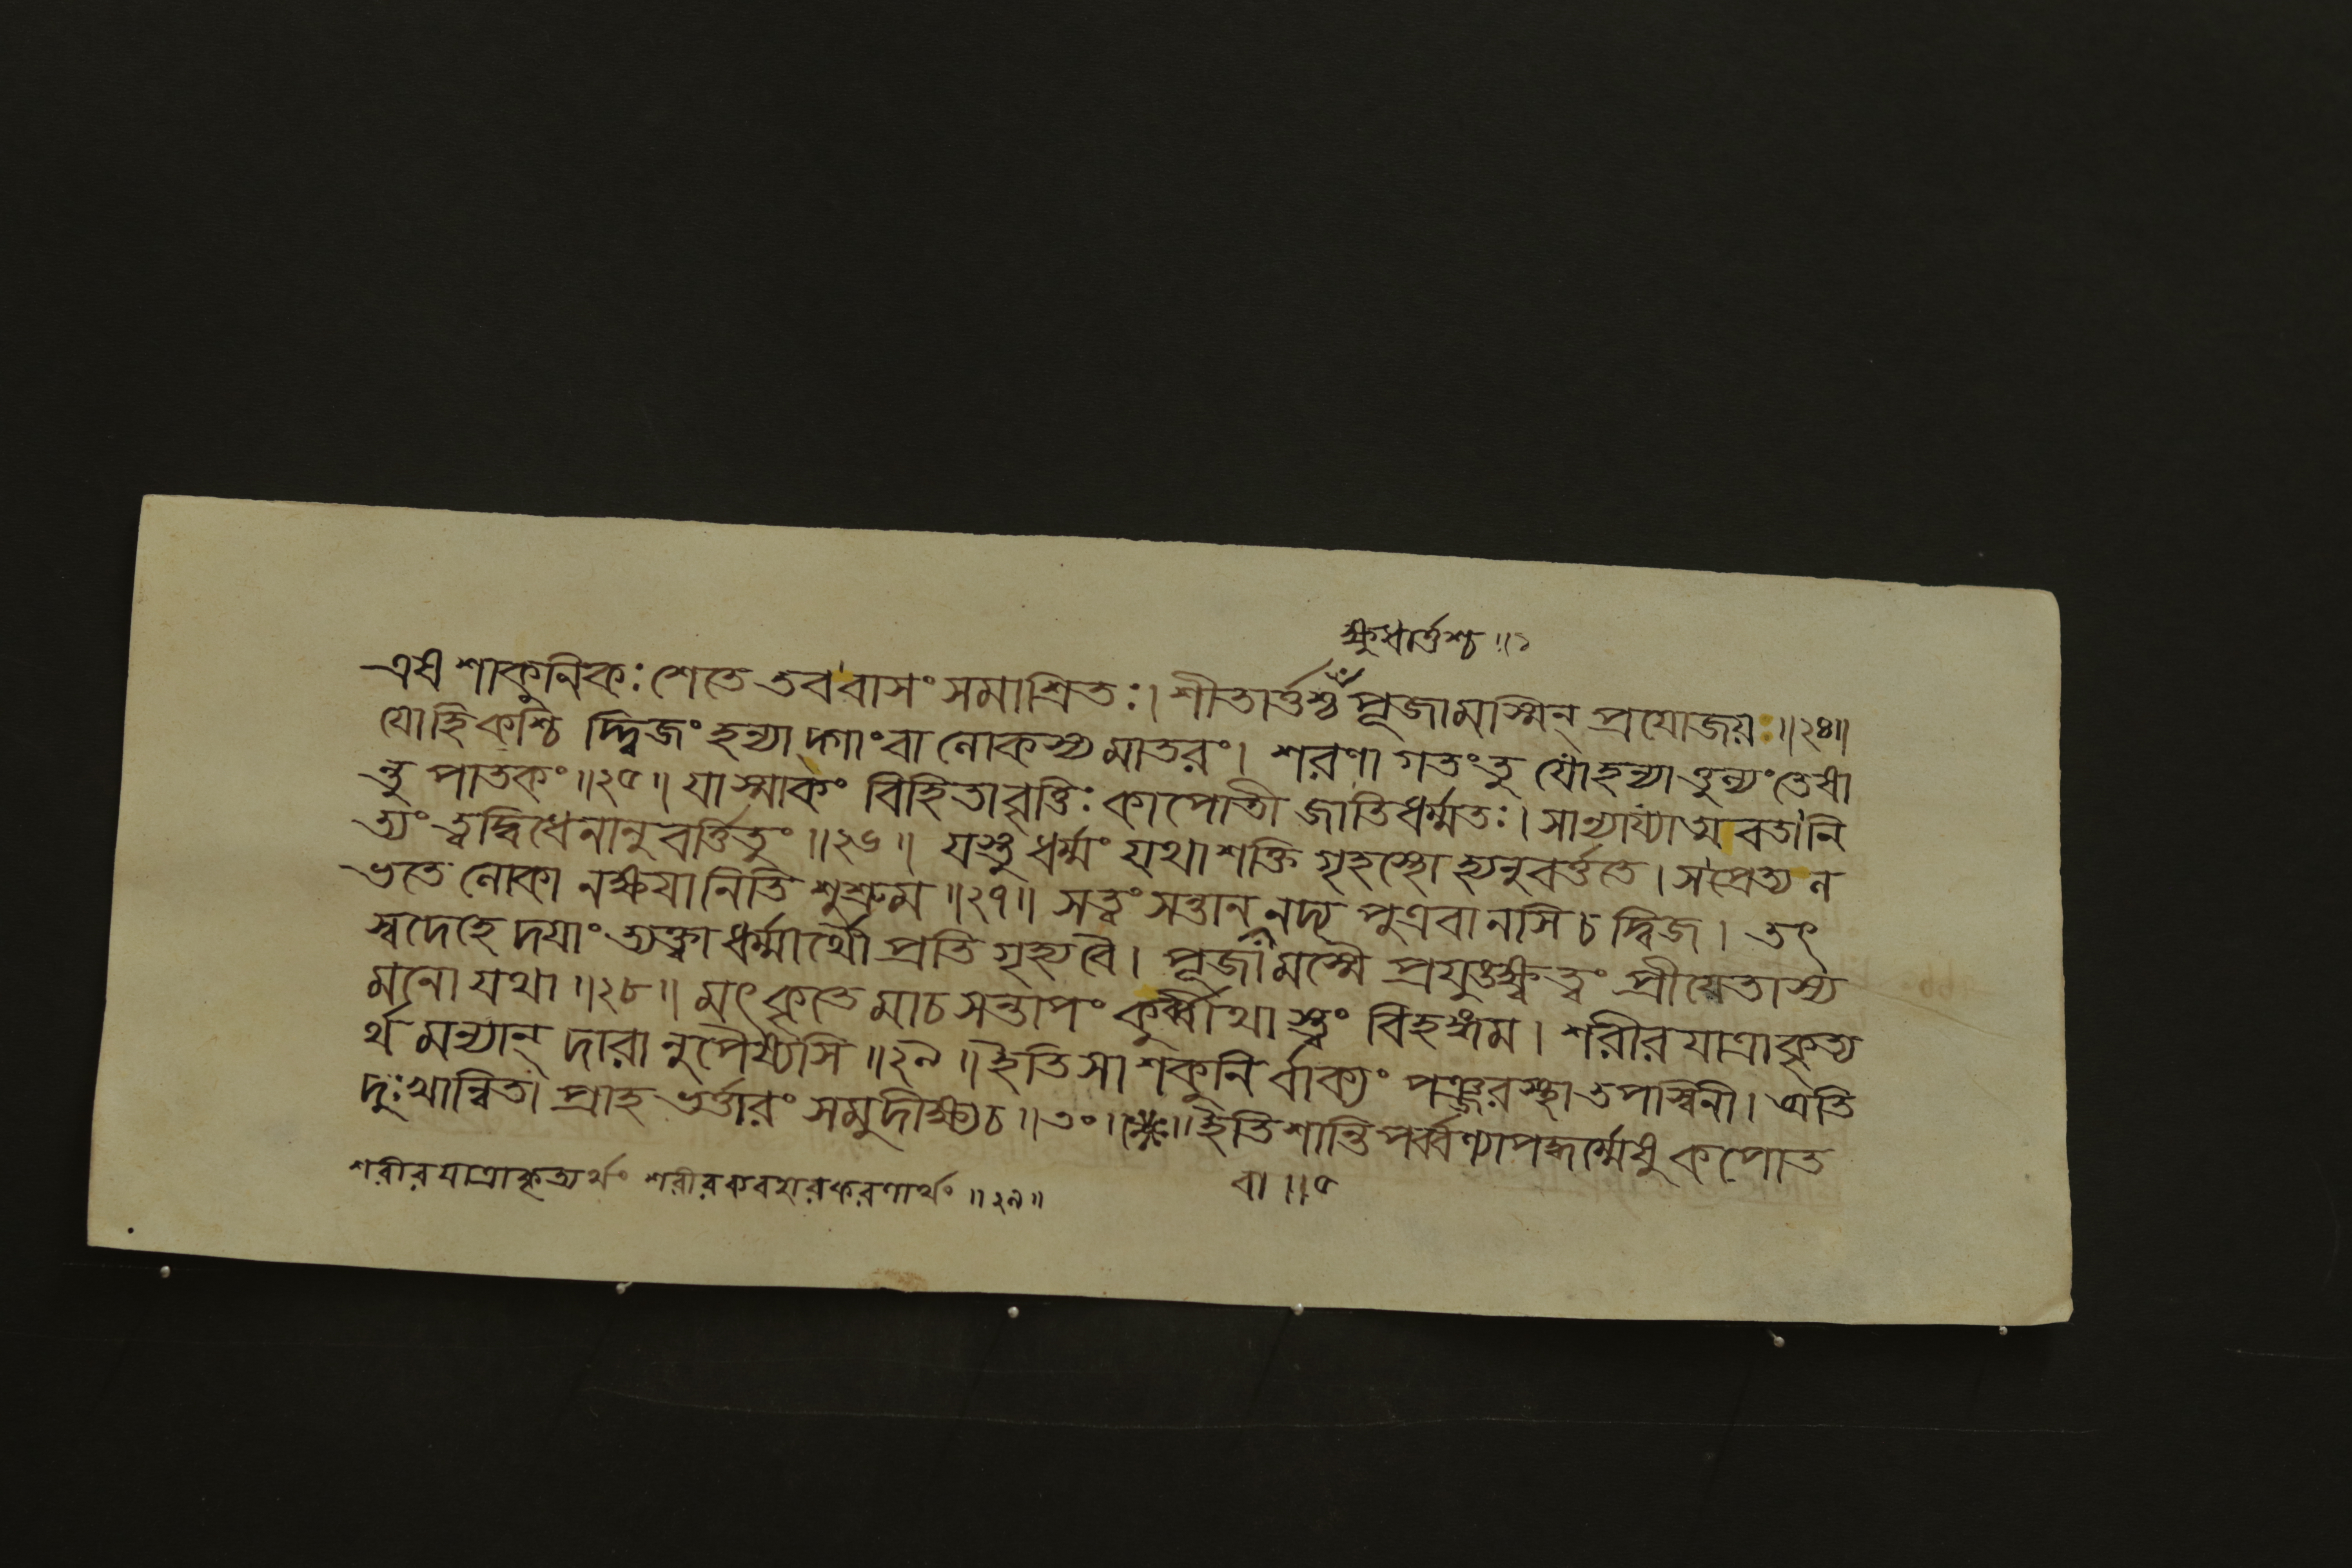 ক্ষুধার্ত্তশ্চ ॥১
এষ শাকুনিকঃ শেতে তব বাসং সমাশ্রিতঃ। শীতার্ত্তশ্চ পূজামস্মিন্ প্রযোজয়ঃ ॥২৪॥
যোহি কশ্চি দ্দ্বিজং হন্যা দ্গাং বা লোকস্য মাতরং। শরণা গতং তু যো হন্যাত্তুল্যং তেষা
ন্তু পাতকং ॥২৫॥ যাস্মাকং বিহিতা বৃত্তিঃ কাপোতী জাতিধর্ম্মতঃ। সান্যায্যাত্ম বতা নি
ত্যং ত্বদ্বিধেনানু বর্ত্তিতুং ॥২৬॥ যস্তু ধর্ম্মং যথা শক্তি গৃহস্থো হ্যনুবর্ত্ততে। স প্রেত্য ল
ভতে লোকা নক্ষয়া নিতি শুশ্রুম ॥২৭॥ সত্বং সন্তান নদ্য পুত্রবানসি চ দ্বিজ। তৎ
স্বদেহে দয়াং ত্যক্ত্বা ধর্ম্মার্থৌ প্রতি গৃহ্য বৈ। পূজামস্মৈ প্রযুঙ্ক্ষ্ব ত্বং প্রীয়েতাস্য
মনো যথা ॥২৮॥ মৎ কৃতে মা চ সন্তাপং কুর্ব্বীথা স্ত্বং বিহঙ্গম। শরীর যাত্রাকৃত্য
র্থ মন্যান্ দারা নুপৈষ্যসি ॥২৯॥ ইতি সা শকুনি র্বাক্যং পঞ্জরস্থা তপস্বিনী। অতি
দুঃখান্বিতা প্রাহ ভর্ত্তারং সমুদীক্ষ্য চ ॥৩০॥ ইতি শান্তি পর্ব্বণ্যাপদ্ধর্ম্মেষু কপোত
শরীর যাত্রাকৃত্যর্থং শরীরব্যবহারকরণার্থং ॥২৯॥
বা ॥৫